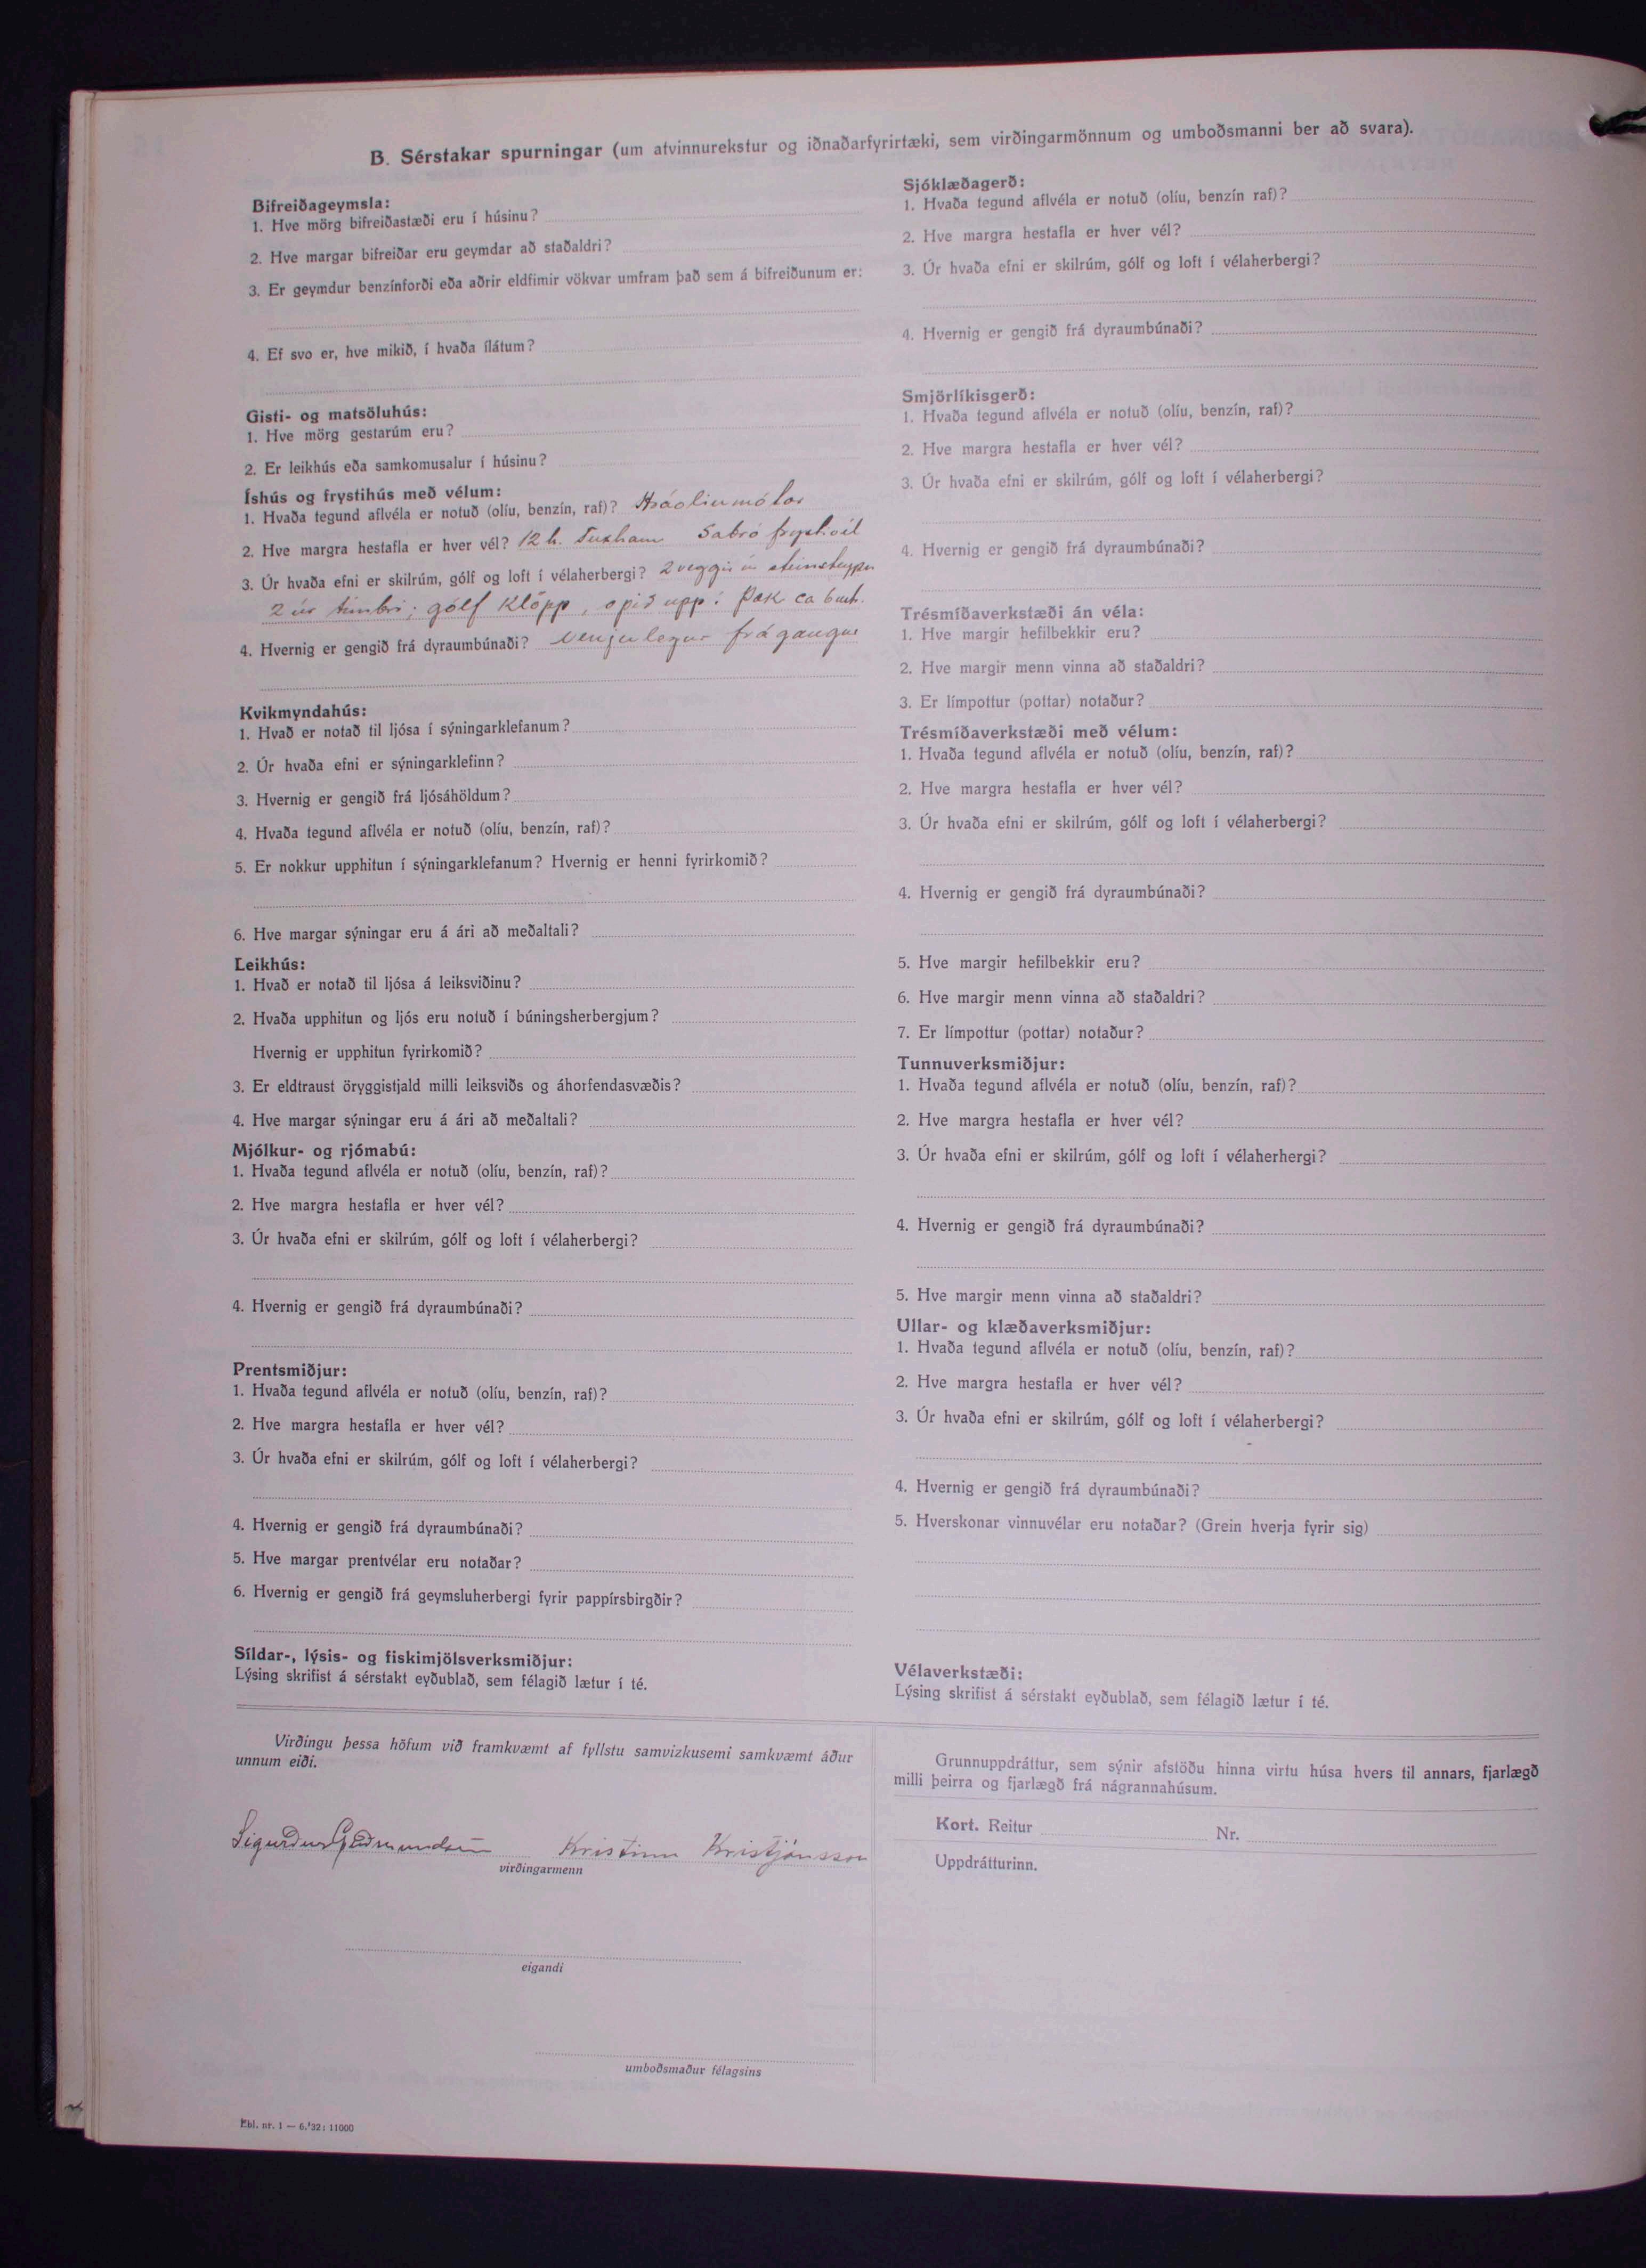 B. Sérstakar spurningar (um atvinnurekstur og iðnaðarfyrirtæki, sem virðingarmönnum og umboðsmanni ber að svara).
Bifreiðageymsla:
1. Hve mörg bifreiðastæði eru í húsinu?
2. Hve margar bifreiðar eru geymdar að staðaldri?
3. Er geymdur benzínforði eða aðrir eldfimir vökvar umfram það sem á bifreiðunum er:
4. Ef svo er, hve mikið, í hvaða ílátum?
Gisti- og matsöluhús:
1. Hve mörg gestarúm eru?
2. Er leikhús eða samkomusalur í húsinu?
Íshús og frystihús með vélum:
1. Hvaða tegund aflvéla er notuð (olíu, benzín, raf)? Hráolíumótor
2. Hve margra hestafla er hver vél? 12 h. Tuxham Sabró frystivél
3. Úr hvaða efni er skilrúm, gólf og loft í vélaherbergi? 2 veggir úr steinsteypu
2 úr timbri; gólf klöpp, opið upp í þak ca 6 mtr.
4. Hvernig er gengið frá dyraumbúnaði? Venjulegur frágangur
Kvikmyndahús:
1. Hvað er notað til ljósa í sýningarklefanum?
2. Úr hvaða efni er sýningarklefinn?
3. Hvernig er gengið frá ljósáhöldum?
4. Hvaða tegund aflvéla er notuð (olíu, benzín, raf)?
5. Er nokkur upphitun í sýningarklefanum? Hvernig er henni fyrirkomið?
6. Hve margar sýningar eru á ári að meðaltali?
Leikhús:
1. Hvað er notað til ljósa á leiksviðinu?
2. Hvaða upphitun og ljós eru notuð í búningsherbergjum?
Hvernig er upphitun fyrirkomið?
3. Er eldtraust öryggistjald milli leiksviðs og áhorfendasvæðis?
4. Hve margar sýningar eru á ári að meðaltali?
Mjólkur- og rjómabú:
1. Hvaða tegund aflvéla er notuð (olíu, benzín, raf)?
2. Hve margra hestafla er hver vél?
3. Úr hvaða efni er skilrúm, gólf og loft í vélaherbergi?
4. Hvernig er gengið frá dyraumbúnaði?
Prentsmiðjur:
1. Hvaða tegund aflvéla er notuð (olíu, benzín, raf)?
2. Hve margra hestafla er hver vél?
3. Úr hvaða efni er skilrúm, gólf og loft í vélaherbergi?
4. Hvernig er gengið frá dyraumbúnaði?
5. Hve margar prentvélar eru notaðar?
6. Hvernig er gengið frá geymsluherbergi fyrir pappírsbirgðir?
Síldar-, lýsis- og fiskimjölsverksmiðjur:
Lýsing skrifist á sérstakt eyðublað, sem félagið lætur í té.
Sjóklæðagerð:
1. Hvaða tegund aflvéla er notuð (olíu, benzín raf)?
2. Hve margra hestafla er hver vél?
3. Úr hvaða efni er skilrúm, gólf og loft í vélaherbergi?
4. Hvernig er gengið frá dyraumbúnaði?
Smjörlíkisgerð:
1. Hvaða tegund aflvéla er notuð (olíu, benzín, raf)?
2. Hve margra hestafla er hver vél?
3. Úr hvaða efni er skilrúm, gólf og loft í vélaherbergi?
4. Hvernig er gengið frá dyraumbúnaði?
Trésmíðaverkstæði án véla:
1. Hve margir hefilbekkir eru?
2. Hve margir menn vinna að staðaldri?
3. Er límpottur (pottar) notaður?
Trésmíðaverkstæði með vélum:
1. Hvaða tegund aflvéla er notuð (olíu, benzín, raf)?
2. Hve margra hestafla er hver vél?
3. Úr hvaða efni er skilrúm, gólf og loft í vélaherbergi?
4. Hvernig er gengið frá dyraumbúnaði?
5. Hve margir hefilbekkir eru?
6. Hve margir menn vinna að staðaldri?
7. Er límpottur (pottar) notaður?
Tunnuverksmiðjur:
1. Hvaða tegund aflvéla er notuð (olíu, benzín, raf)?
2. Hve margra hestafla er hver vél?
3. Úr hvaða efni er skilrúm, gólf og loft í vélaherhergi?
4. Hvernig er gengið frá dyraumbúnaði?
5. Hve margir menn vinna að staðaldri?
Ullar- og klæðaverksmiðjur:
1. Hvaða tegund aflvéla er notuð (olíu, benzín, raf)?
2. Hve margra hestafla er hver vél?
3. Úr hvaða efni er skilrúm, gólf og loft í vélaherbergi?
4. Hvernig er gengið frá dyraumbúnaði?
5. Hverskonar vinnuvélar eru notaðar? (Grein hverja fyrir sig)
Vélaverkstæði:
Lýsing skrifist á sérstakt eyðublað, sem félagið lætur í té.
Virðingu þessa höfum við framkvæmt af fyllstu samvizkusemi samkvæmt áður
unnum eiði.
Sigurður Guðmundsson Kristinn Kristjánsson
virðingarmenn
eigandi
umboðsmaður félagsins
Grunnuppdráttur, sem sýnir afstöðu hinna virtu húsa hvers til annars, fjarlægð
milli þeirra og fjarlægð frá nágrannahúsum.
Kort. Reitur Nr.
Uppdrátturinn.
Ebl. nr. 1 — 6.'32: 11000